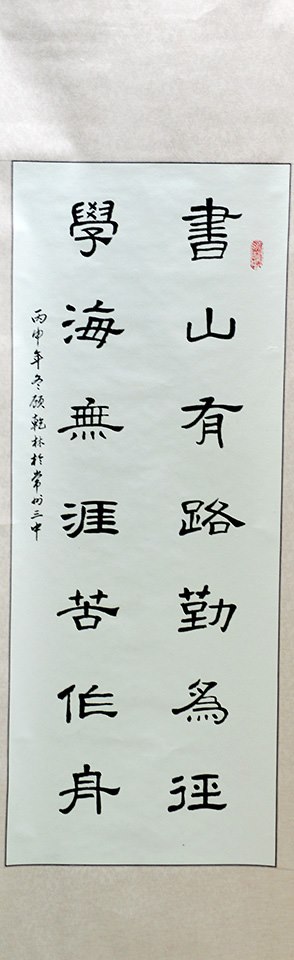 書山有路勤為徑
學海無涯苦作舟
丙申年冬顾乾林於常州三中